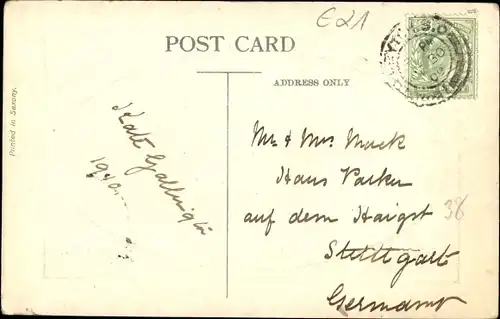 €21
POST CARD
ADDRESS ONLY
Printed in Saxony.
Kate
Mr & Mrs Mack
Haus Parker
auf dem Haigst
38
Stuttgart
Germany